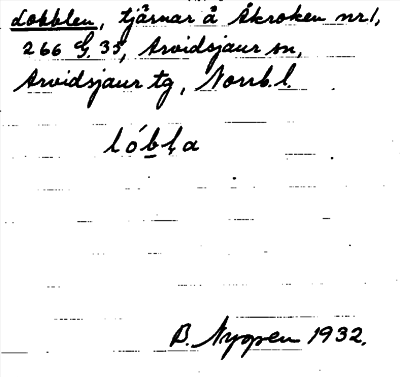 Lobblen, tjärnar å Åkroken nr1,
266 G. 35, Arvidsjaur sn,
Arvidsjaur tg, Norrb. l.
lóbl̥a
B. Nygren 1932.